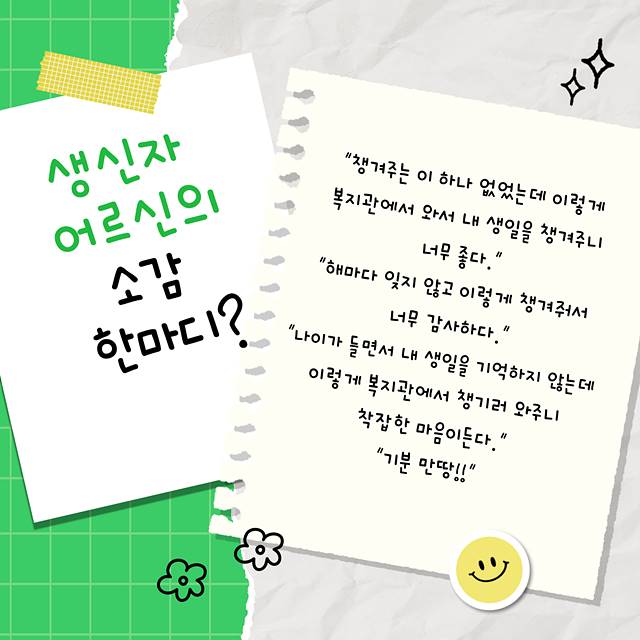 생신자
어르신의
소감
한마디?
"챙겨주는 이 하나 없었는데 이렇게
복지관에서 와서 내 생일을 챙겨주니
너무 좋다."
"해마다 잊지 않고 이렇게 챙겨줘서
너무 감사하다."
"나이가 들면서 내 생일을 기억하지 않는데
이렇게 복지관에서 챙기러 와주니
착잡한 마음이든다."
"기분 만땅!!"